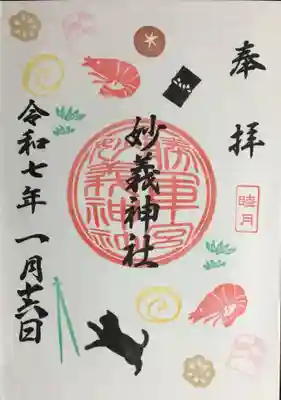 奉拝
睦月
勝軍宮
妙義神社
妙義神社
令和七年 一月十六日